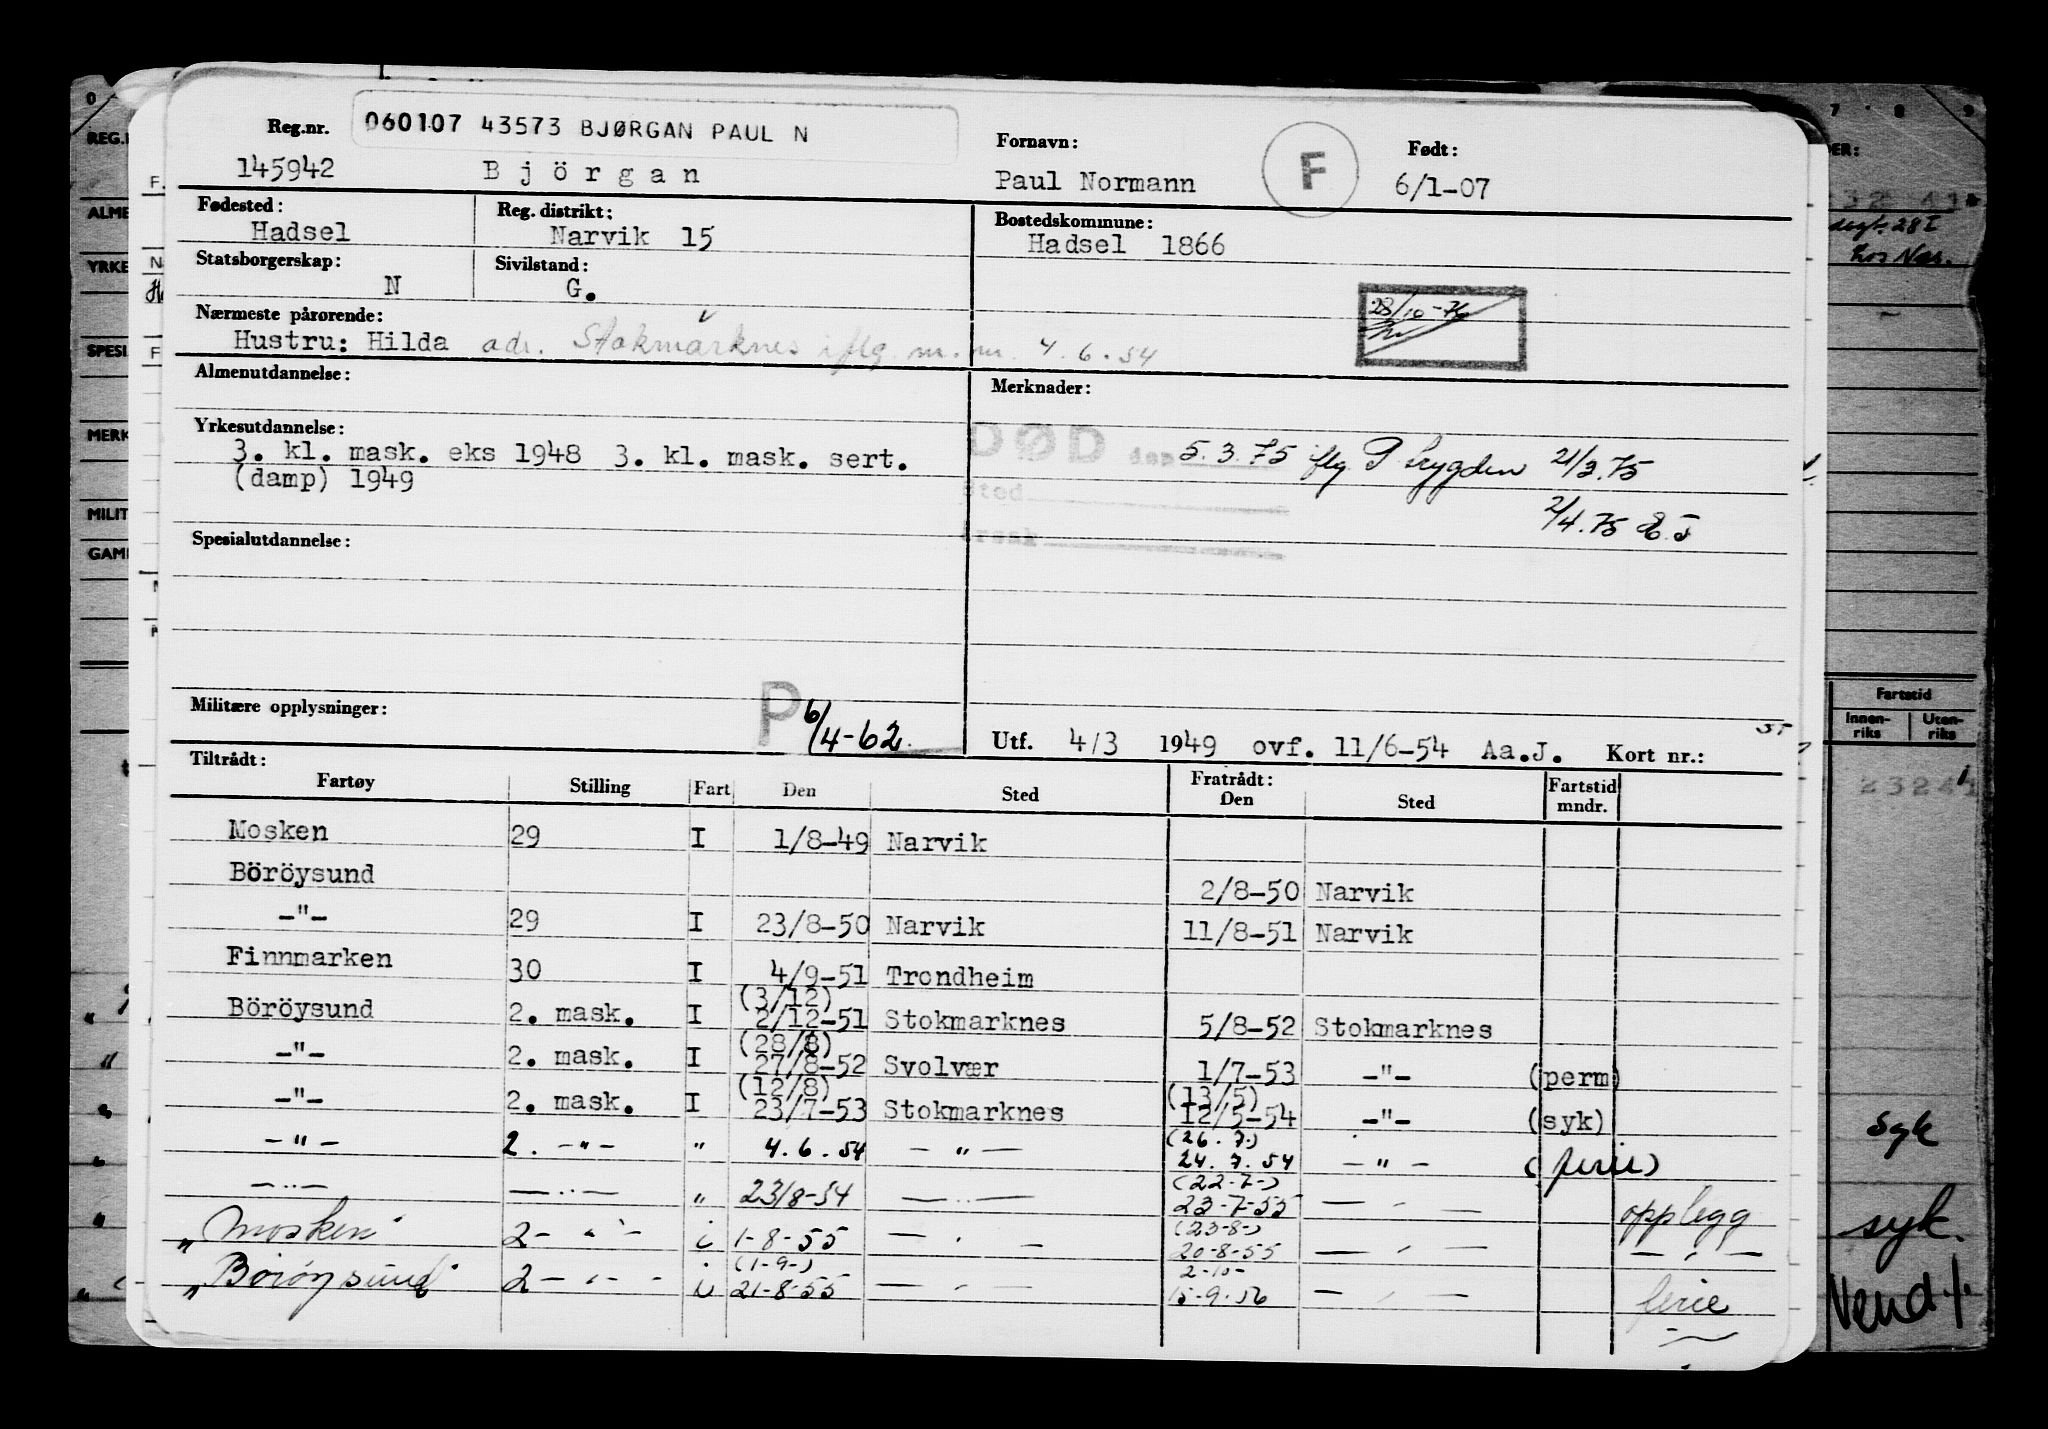 Reg.nr. 060107 43573 BJØRGAN PAUL N Fornavn: F Født:
145942 Björgan Paul Normann 6/1-07
Fødested: Reg. distrikt: Bostedskommune:
Hadsel Narvik 15 Hadsel 1866
Statsborgerskap: Sivilstand:
N G.
28/10-76
Nærmeste pårørende:
Hustru: Hilda adr. Stokmarknes iflg. m.nr. 4.6.54
Almenutdannelse: Merknader:
Yrkesutdannelse:
3. kl. mask. eks 1948 3. kl. mask. sert. DØD den 5.3.75 iflg. P trygden 21/3.75
(damp) 1949 sted
2/4.75 E.J
Spesialutdannelse: årsak
Militære opplysninger: P 6/4-62
Utf. 4/3 1949 ovf. 11/6-54 Aa.J. Kort nr.:
Tiltrådt: Fratrådt:
Fartøy Stilling Fart Den Sted Den Sted Fartstid mndr.
Mosken 29 I 1/8-49 Narvik
Böröysund 2/8-50 Narvik
-"- 29 I 23/8-50 Narvik 11/8-51 Narvik
Finnmarken 30 I 4/9-51 Trondheim
(3/12)
Böröysund 2. mask. I 2/12-51 Stokmarknes 5/8-52 Stokmarknes
(28/8)
-"- 2. mask. I 27/8-52 Svolvær 1/7-53 -"- (perm)
(12/8) (13/5)
-"- 2. mask. I 23/7-53 Stokmarknes 12/5-54 -"- (syk)
(26.7.)
-"- 2. -"- " 4.6.54 -"- 24.7.54 -"- (ferie)
(22-7-)
-"- -"- " 23/8-54 -"- 23-7-55 -"- opplegg
(23-8-)
"Mosken" 2-"- i 1-8-55 -"- 20-8-55 -"- -"-
(1-9-) 2-10-
"Börøysund" 2-"- i 21-8-55 -"- 15-9-56 -"- ferie
0
REG.
ALME
YRKE
SPESI
MERK
MILIT
GAM
7 8 9
DER:
Fartstid
Innen-riks Uten-riks
syk
syk.
Vend!